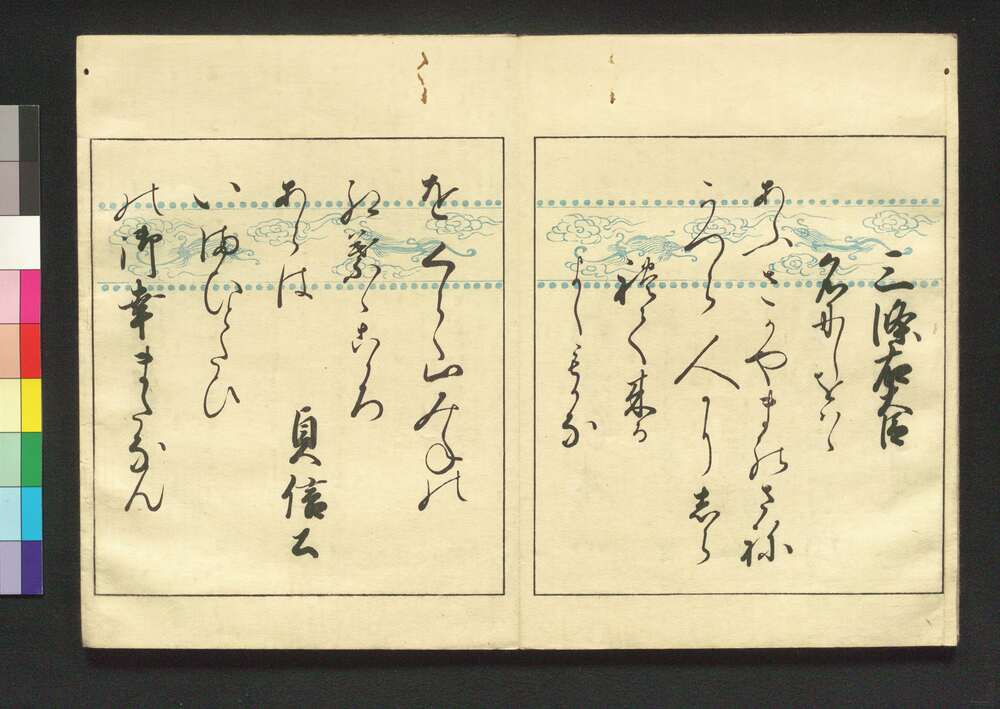 三條右大臣
名尓しをハゝ
あふさかやまのさね
かつら人尓しら
禮て来る
よしも可な
をくら山みねの
紅葉々こゝろ
あらは
貞信公
いまひとたひ
の御幸またなん